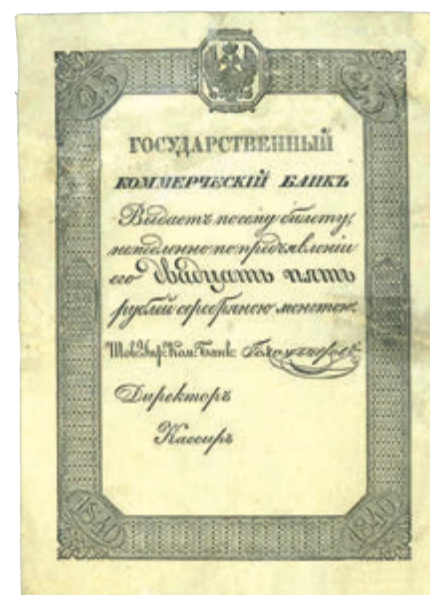 25 25
ГОСУДАРСТВЕННЫЙ
КОММЕРЧЕСКІЙ БАНКЪ
Выдаетъ по сему билету,
немедленно по предъявленіи
его двадцать пять
рублей серебряною монетою.
Тов. Упр. Ком. Банк.
Директоръ
Кассиръ
1840 1840